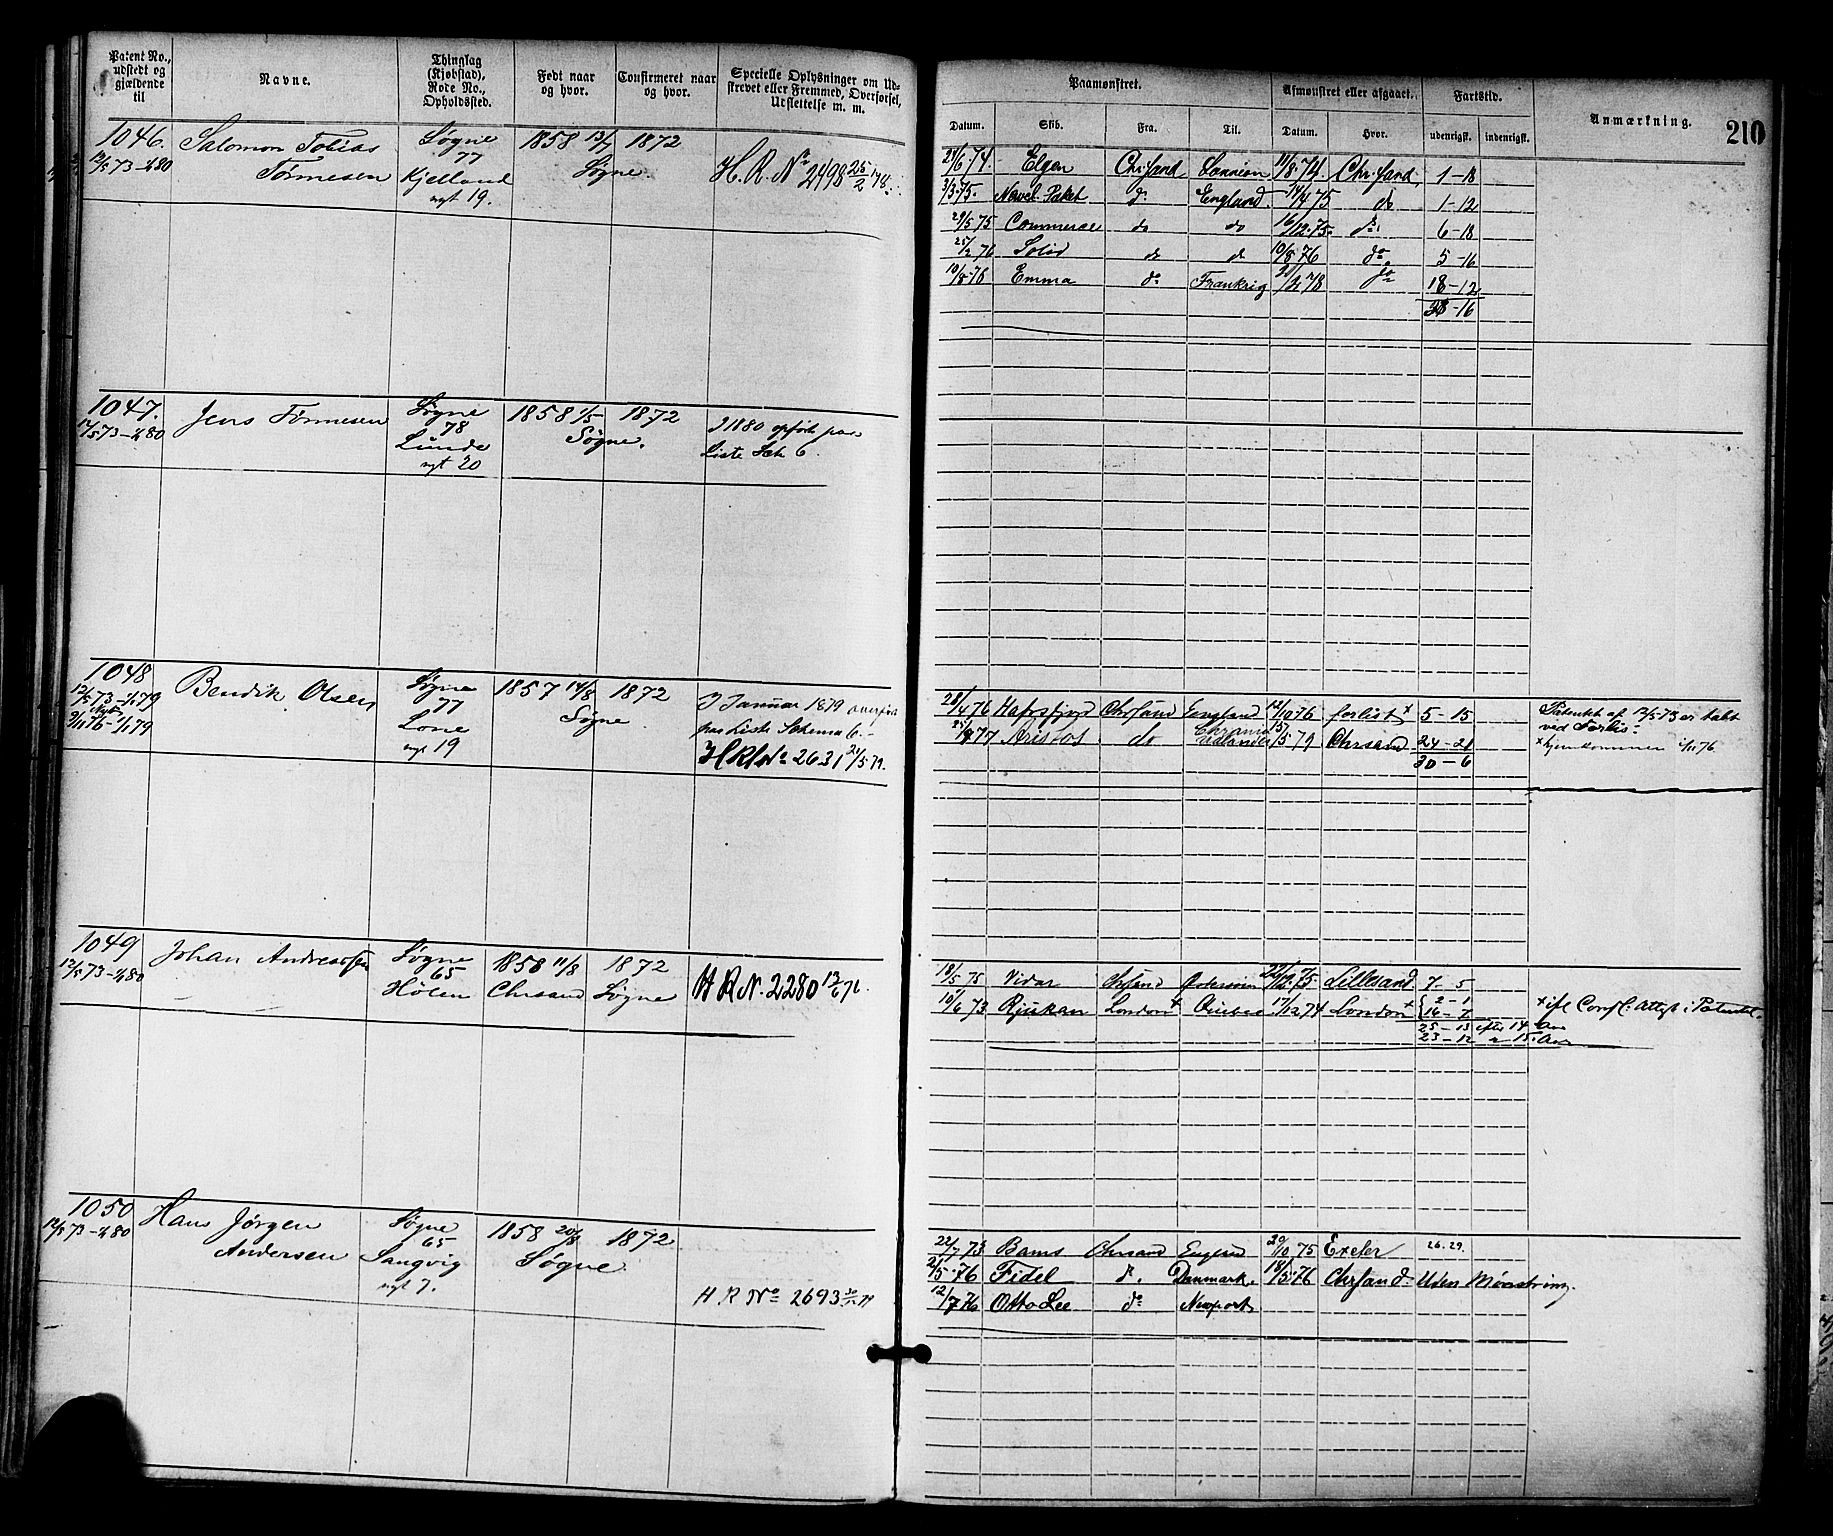 Patent No., udstedt og gjældende til
Navne.
Thinglag (Kjøbstad), Rode No., Opholdssted.
Født naar og hvor.
Confirmeret naar og hvor.
Specielle Oplysninger om Udskrevet eller Fremmed, Overførsel, Udslettelse m. m.
Paamønstret.
Afmønstret eller afgaaet.
Fartstid.
Anmærkning.
210
Datum.
Skib.
Fra.
Til.
Datum.
Hvor.
udenrigsk.
indenrigsk.
1046. Salomon Tobias Søgne 1858 13/7 1872
12/5 73-1/1 80 Tørmesen 77 Søgne H. R. No 2498 25/2 78.
Kjelland
nyt 19.
24/6 74. Elgen Chrsand Lannion 11/8 74. Chrsand 1-18
3/3 75. Navel. Paket do England. 14/4 75 do 1-12
29/5 75 Commerce do do 16/12 75. do 6-18
25/2 76 Solid do do 10/8 76 do 5-16
Emma do Frankrig do 18-12
38-16
1047. Jens Tørmesen Søgne 1858 1/5 1872 I 1880 opført paa
12/5 73-1/1 80 78 Søgne. Liste Sch 6.
Lunde
nyt 20
1048 Bendik Olsen Søgne 1857 14/8 1872 I Januar 1879 overført
12/5 73-1/1 79 77 Søgne paa Liste Schema 6.-
Nyt Lone H R No 2631 21/5 79.
9/11 76-1/1 79 nyt 19
28/4 76 Hafrsfjord Chrsand England 12/10 76 forlist x 5-15 Patentet af 12/5 73 er tabt
ved Forlis.
77 Aristos do 15/5 79 Chrsand 24-21 x hjemkommen
30-6
1049 Johan Andreassen Søgne 1858 11/8 1872 H R N. 2280 13/6 76.
12/5 73-1/1 80 65 Chrsand Søgne
Hölen
18/5 75 Vidar Chrsand 75 Lillesand 7-5
10/6 73 Rjukan London x Quebec 17/12 74 London x 2-1 x ifl Consl: Attest i Patentet.
16-7
25-13 efter 14 Aar
23-12 " 15. Aar
1050 Hans Jørgen Søgne 1858 20/8 1872
12/5 73-1/1 80 Andersen 65 Søgne
Langvig
nyt 7. H R No 2693
22/7 73 Bams Chrsand England 20/10 75 Exeter 26.29.
21/5 76 Fidel do. Danmark. 18/5 76 Chrsand. Uden Mønstring.
12/7 76 Otto Lee do Newport